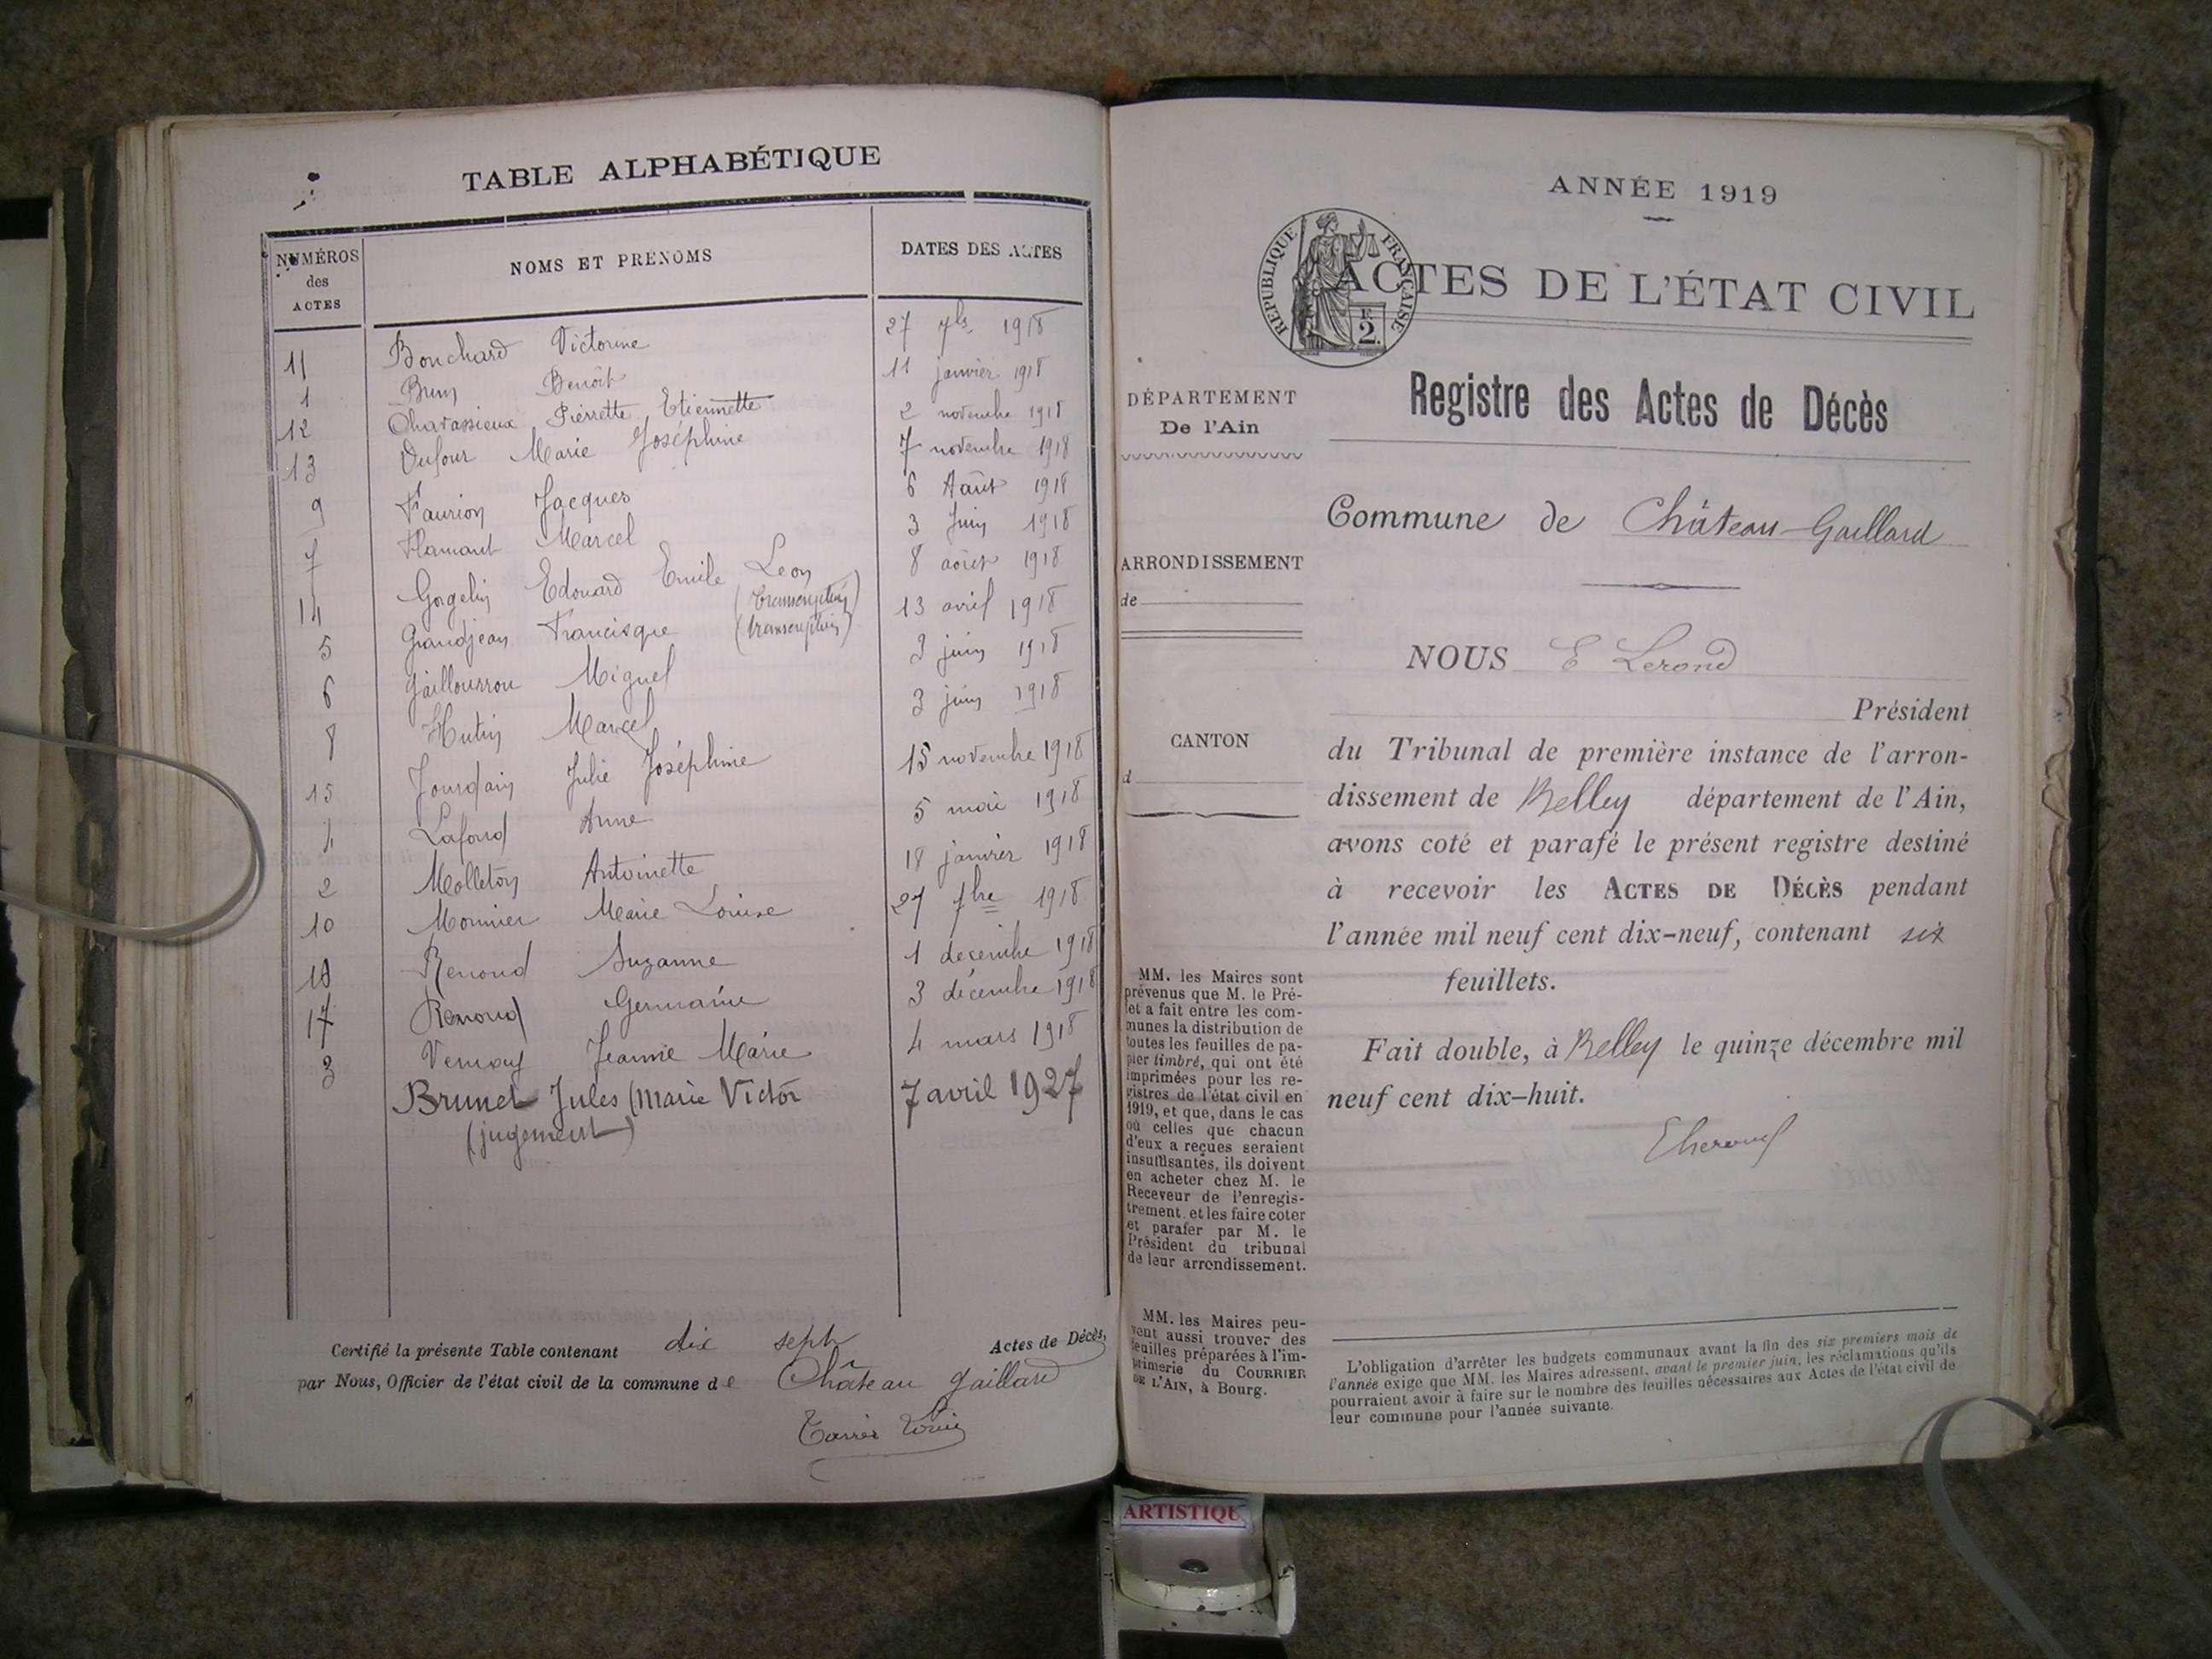 TABLE ALPHABÉTIQUE
NUMÉROS des ACTES
NOMS ET PRÉNOMS
DATES DES ACTES
11 Bouchard Victorine 27 7bre 1918
1 Brun Benoît 11 janvier 1918
12 Charassieux Pierrette Etiennette 2 novembre 1918
13 Dufour Marie Joséphine 7 novembre 1918
9 Faurion Jacques 6 Août 1918
7 Flamant Marcel 3 Juin 1918
14 Gorgelin Edouard Emile Léon (transcription) 8 août 1918
5 Grandjean Francisque (transcription) 13 avril 1918
6 Marcel Miguel 3 juin 1918
8 Hutin Marcel 3 juin 1918
15 Jourdain Julie Joséphine 15 novembre 1918
4 Lafond Anne 5 mai 1918
2 Molleton Antoinette 18 janvier 1918
10 Monnier Marie Louise 27 7bre 1918
Renoud Suzanne 1 décembre 1918
17 Renoud Germaine 3 décembre 1918
3 Jeanne Marie 4 mars 1918
Brunet Jules (Marie Victor 7 avril 1927
(jugement)
Certifié la présente Table contenant dix sept Actes de Décès,
par Nous, Officier de l'état civil de la commune de Château Gaillard
ANNÉE 1919
RÉPUBLIQUE FRANÇAISE
2.
ACTES DE L'ÉTAT CIVIL
Registre des Actes de Décès
DÉPARTEMENT
De l'Ain
ARRONDISSEMENT
de
CANTON
d
MM. les Maires sont
prévenus que M. le Pré-
fet a fait entre les com-
munes la distribution de
toutes les feuilles de pa-
pier timbré, qui ont été
imprimées pour les re-
gistres de l'état civil en
1919, et que, dans le cas
où celles que chacun
d'eux a reçues seraient
insuffisantes, ils doivent
en acheter chez M. le
Receveur de l'enregis-
trement et les faire coter
et parafer par M. le
Président du tribunal
de leur arrondissement.
MM. les Maires peu-
vent aussi trouver des
feuilles préparées à l'im-
primerie du COURRIER
DE L'AIN, à Bourg.
Commune de Château-Gaillard
NOUS E Lerond
Président
du Tribunal de première instance de l'arron-
dissement de Belley département de l'Ain,
avons coté et parafé le présent registre destiné
à recevoir les ACTES DE DÉCÈS pendant
l'année mil neuf cent dix-neuf, contenant six
feuillets.
Fait double, à Belley le quinze décembre mil
neuf cent dix-huit.
L'obligation d'arrêter les budgets communaux avant la fin des six premiers mois de
l'année exige que MM. les Maires adressent, avant le premier juin, les réclamations qu'ils
pourraient avoir à faire sur le nombre des feuilles nécessaires aux Actes de l'état civil de
leur commune pour l'année suivante.
ARTISTIQU